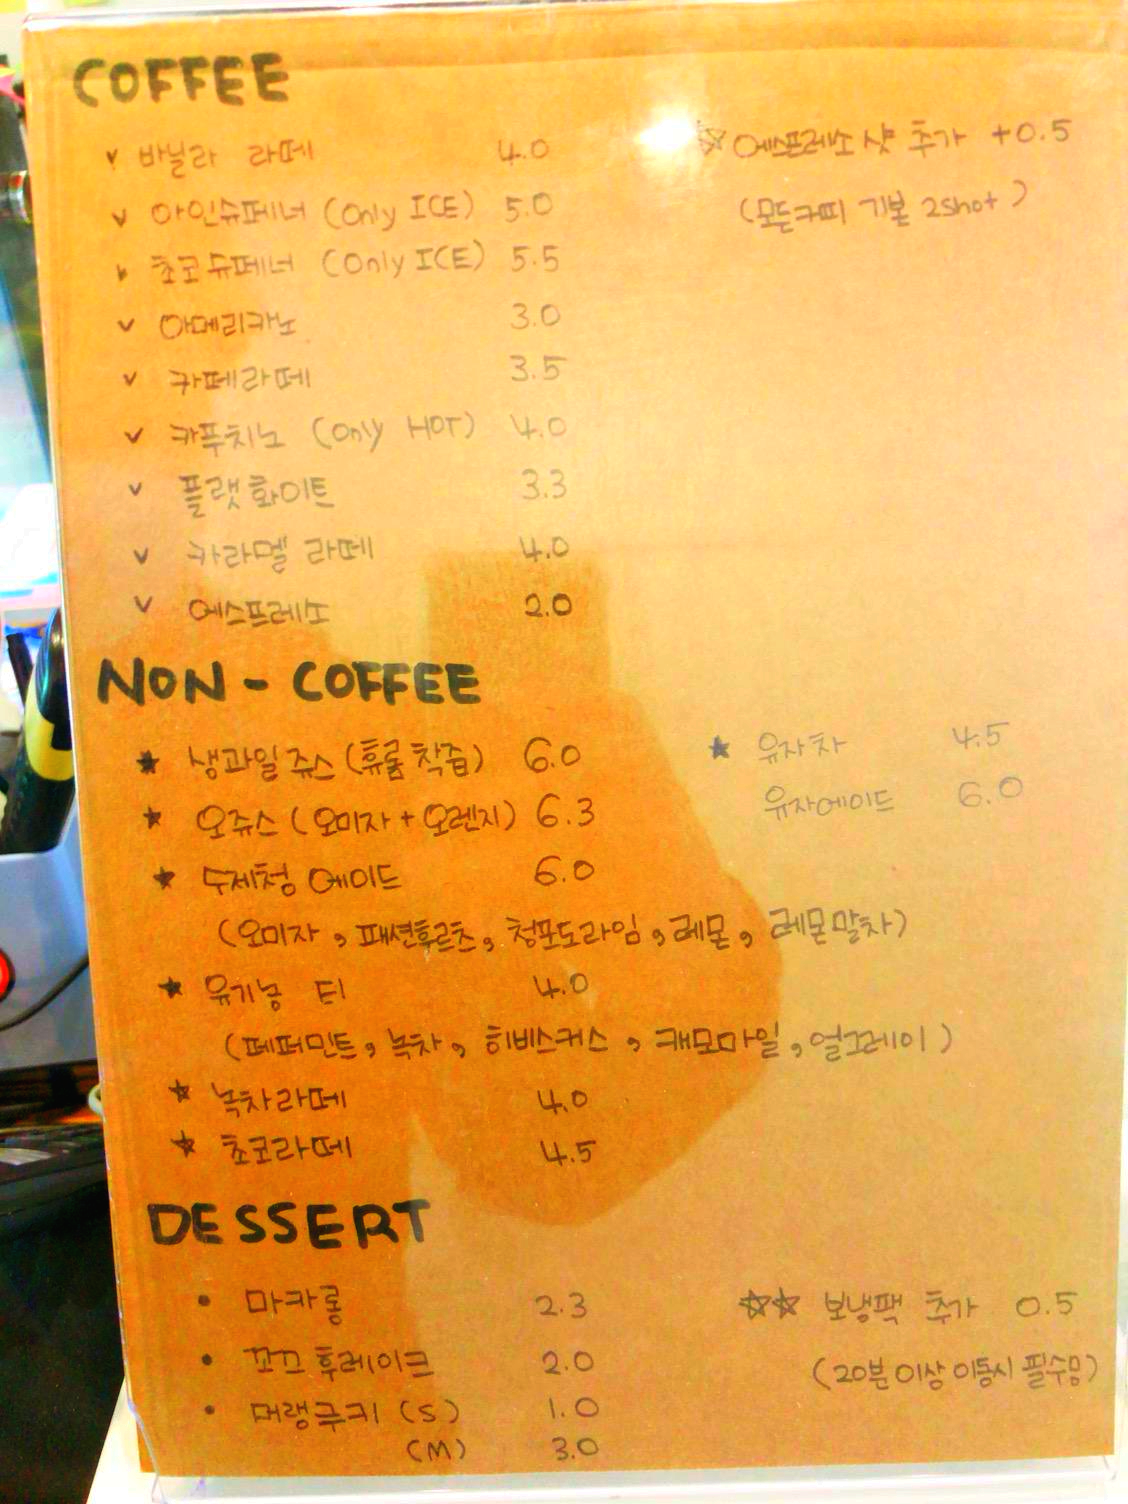 COFFEE
v 바닐라 라떼 4.0
v 아인슈페너 (Only ICE) 5.0
v 초코슈페너 (Only ICE) 5.5
v 아메리카노 3.0
v 카페라떼 3.5
v 카푸치노 (Only HOT) 4.0
v 플랫화이트 3.3
v 카라멜 라떼 4.0
v 에스프레소 2.0
☆ 에스프레소 샷 추가 +0.5
(모든커피 기본 2shot)
NON - COFFEE
★ 생과일 쥬스 (휴롬 착즙) 6.0
★ 오쥬스 (오미자 + 오렌지) 6.3
★ 수제청 에이드 6.0
(오미자, 패션후르츠, 청포도라임, 레몬, 레몬말차)
★ 유기농 티 4.0
(페퍼민트, 녹차, 히비스커스, 캐모마일, 얼그레이)
★ 녹차라떼 4.0
★ 초코라떼 4.5
★ 유자차 4.5
유자에이드 6.0
DESSERT
• 마카롱 2.3
• 꼬끄 후레이크 2.0
• 머랭쿠키 (S) 1.0
(M) 3.0
☆☆ 보냉팩 추가 0.5
(20분이상 이동시 필수임)